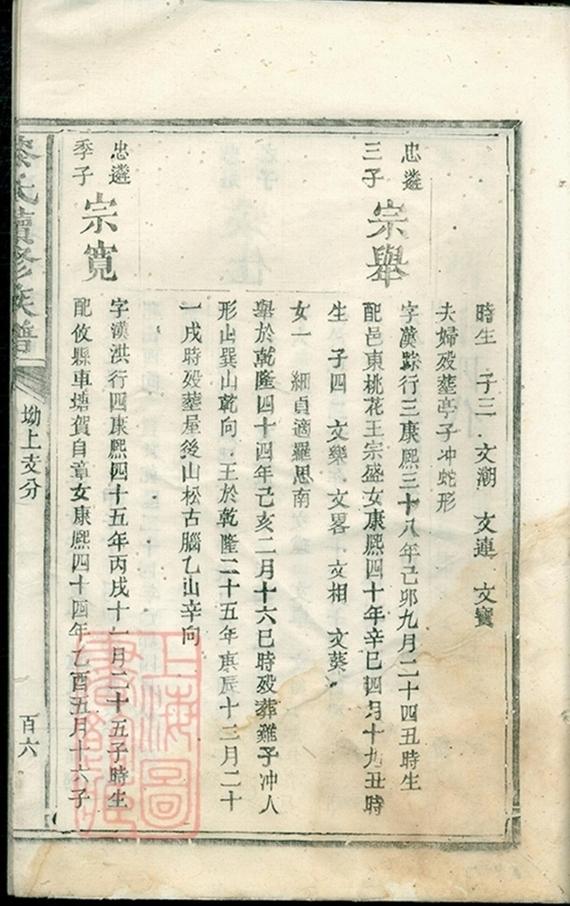 時生　子三　文潮　文連　文寶
夫婦歿塟亭子冲蛇形
忠遴
三子
宗舉
字漢踪行三康熈三十八年己卯九月二十四丑時生
配邑東桃花王宗盛女康熈四十年辛巳四月十九丑時
生　子四　文樂　文畧　文相　文葵
女一　細貞適羅思南
舉於乾隆四十四年己亥二月十六巳時歿葬雞子冲人
形山巽山乾向　王於乾隆二十五年庚辰十三月二十
一戌時歿塟屋後山松古腦乙山辛向
忠遴
季子
宗寬
字漢洪行四康熈四十五年丙戌十一月二十五子時生
配攸縣車塘賀自章女康熈四十四年乙酉五月十六子
氏續修族譜
坳上支分
百六
上海圖